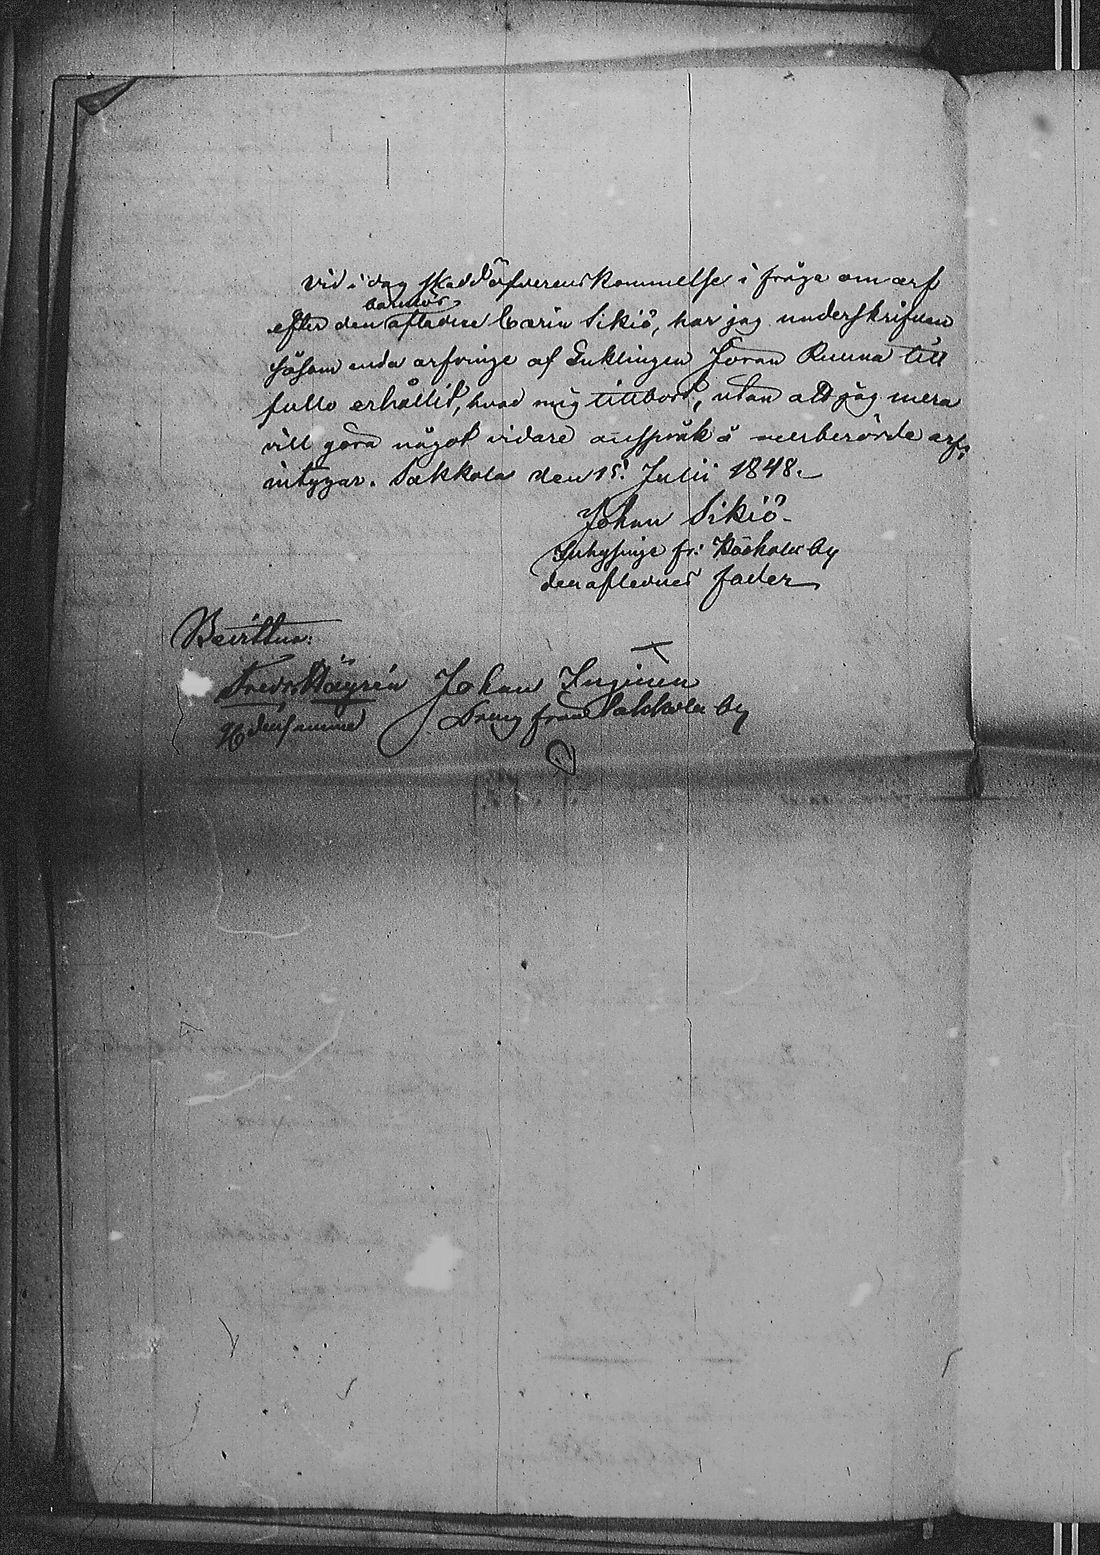 Vid i dag skedd öfverenskommelse i fråga om arf
barnlös
efter den aflidne Carin Sikiö, har jag underskrifven
såsom enda arfvinge af Enklingen Jöran Ruuna till
fullo erhållit, hvad mig tillhört, utan att jag mera
vill göra något vidare anspråk å merberörde arf;
intygar. Sakkola den 15. Julii 1848.
Johan Sikiö
Inhysinge fr: by
den aflednes fader
Bevittna:
Johan Inginen
Hedensamme Dräng från Sakkola by